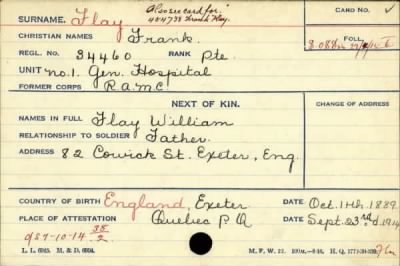 Also see card for:
SURNAME. Flay 404738 Frank Flay. CARD NO.
CHRISTIAN NAMES Frank. FOLL.
REGL. NO. 34460 RANK Pte.
UNIT No. 1. Gen. Hospital
FORMER CORPS R.A.M.C.
NEXT OF KIN. CHANGE OF ADDRESS
NAMES IN FULL Flay William
RELATIONSHIP TO SOLDIER Father.
ADDRESS 82 Cowick St. Exeter, Eng.
COUNTRY OF BIRTH England, Exeter DATE Oct. 11th. 1889.
PLACE OF ATTESTATION Quebec P.Q DATE Sept. 23rd. 1914
L. L. 6945. M. & D. 6904. M. F. W. 22.